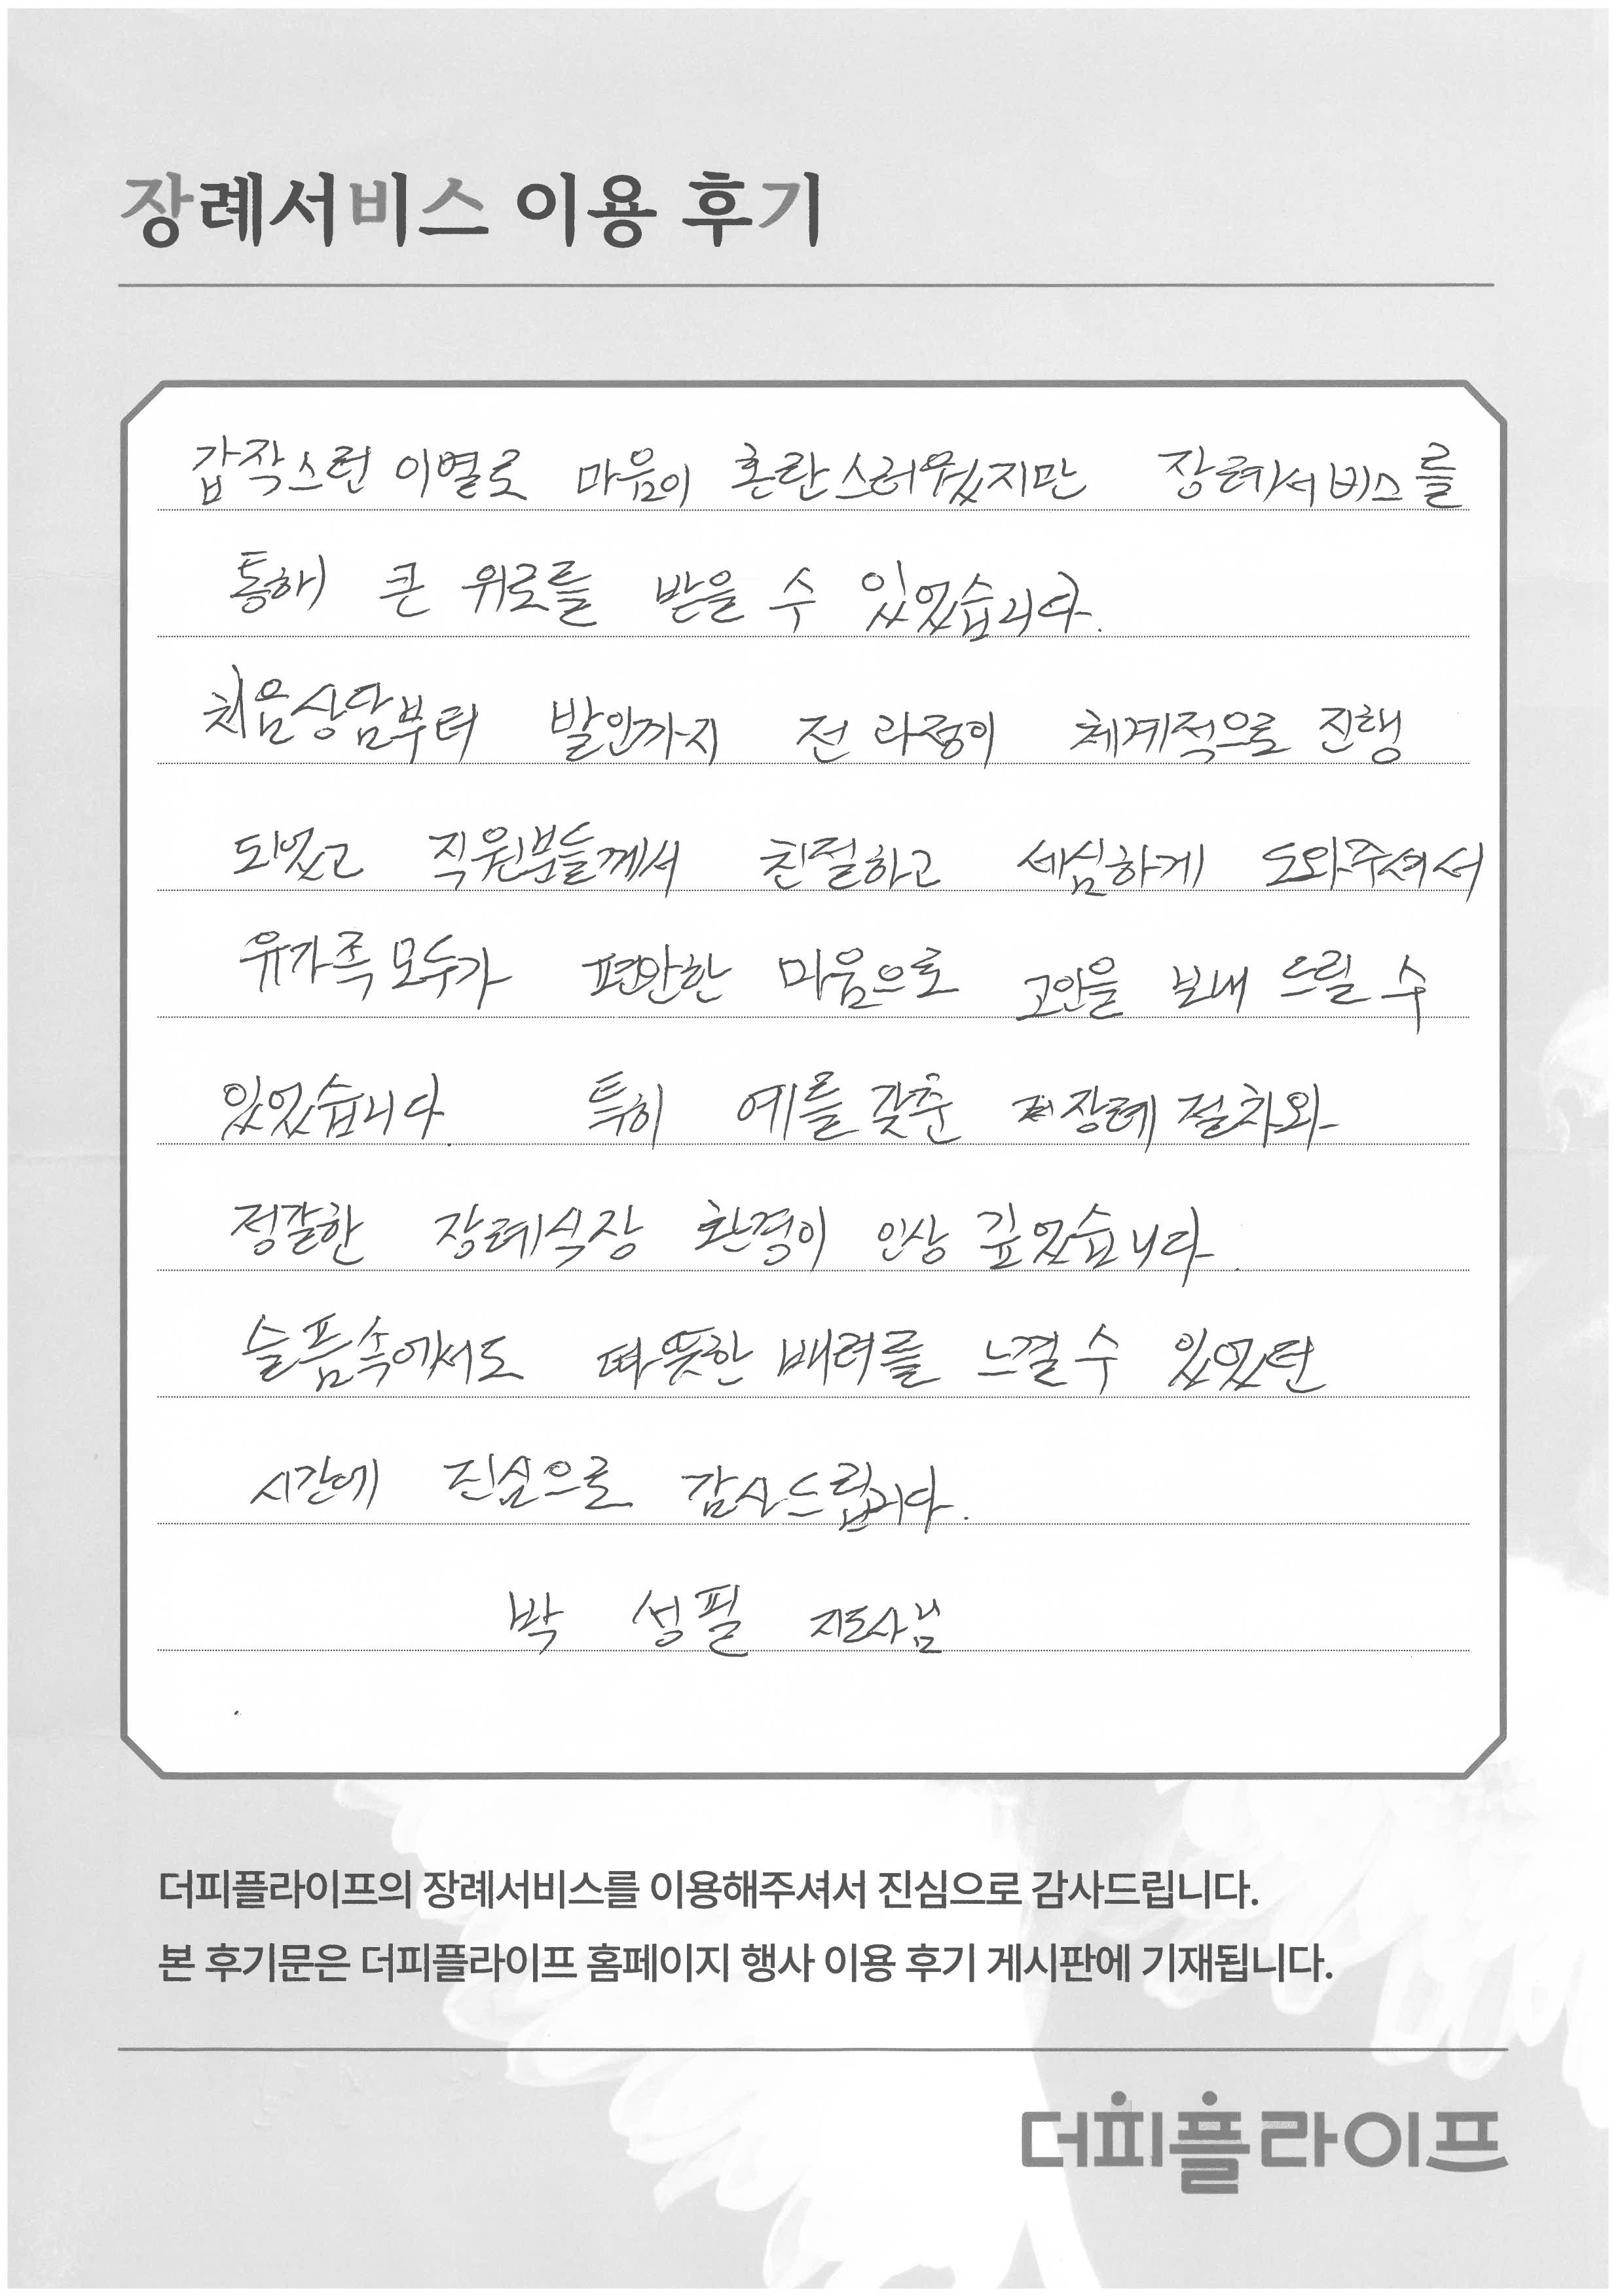 장례서비스 이용 후기
갑작스런 이별로 마음이 혼란스러웠지만 장례서비스를
통해 큰 위로를 받을 수 있었습니다.
처음상담부터 발인까지 전 과정이 체계적으로 진행
되었고 직원분들께서 친절하고 세심하게 도와주셔서
유가족 모두가 편안한 마음으로 고인을 보내 드릴 수
있었습니다. 특히 예를 갖춘 장례 절차와
정갈한 장례식장 환경이 인상 깊었습니다.
슬픔속에서도 따뜻한 배려를 느낄 수 있었던
시간에 진심으로 감사드립니다.
박 성필 지도사님
더피플라이프의 장례서비스를 이용해주셔서 진심으로 감사드립니다.
본 후기문은 더피플라이프 홈페이지 행사 이용 후기 게시판에 기재됩니다.
더피플라이프